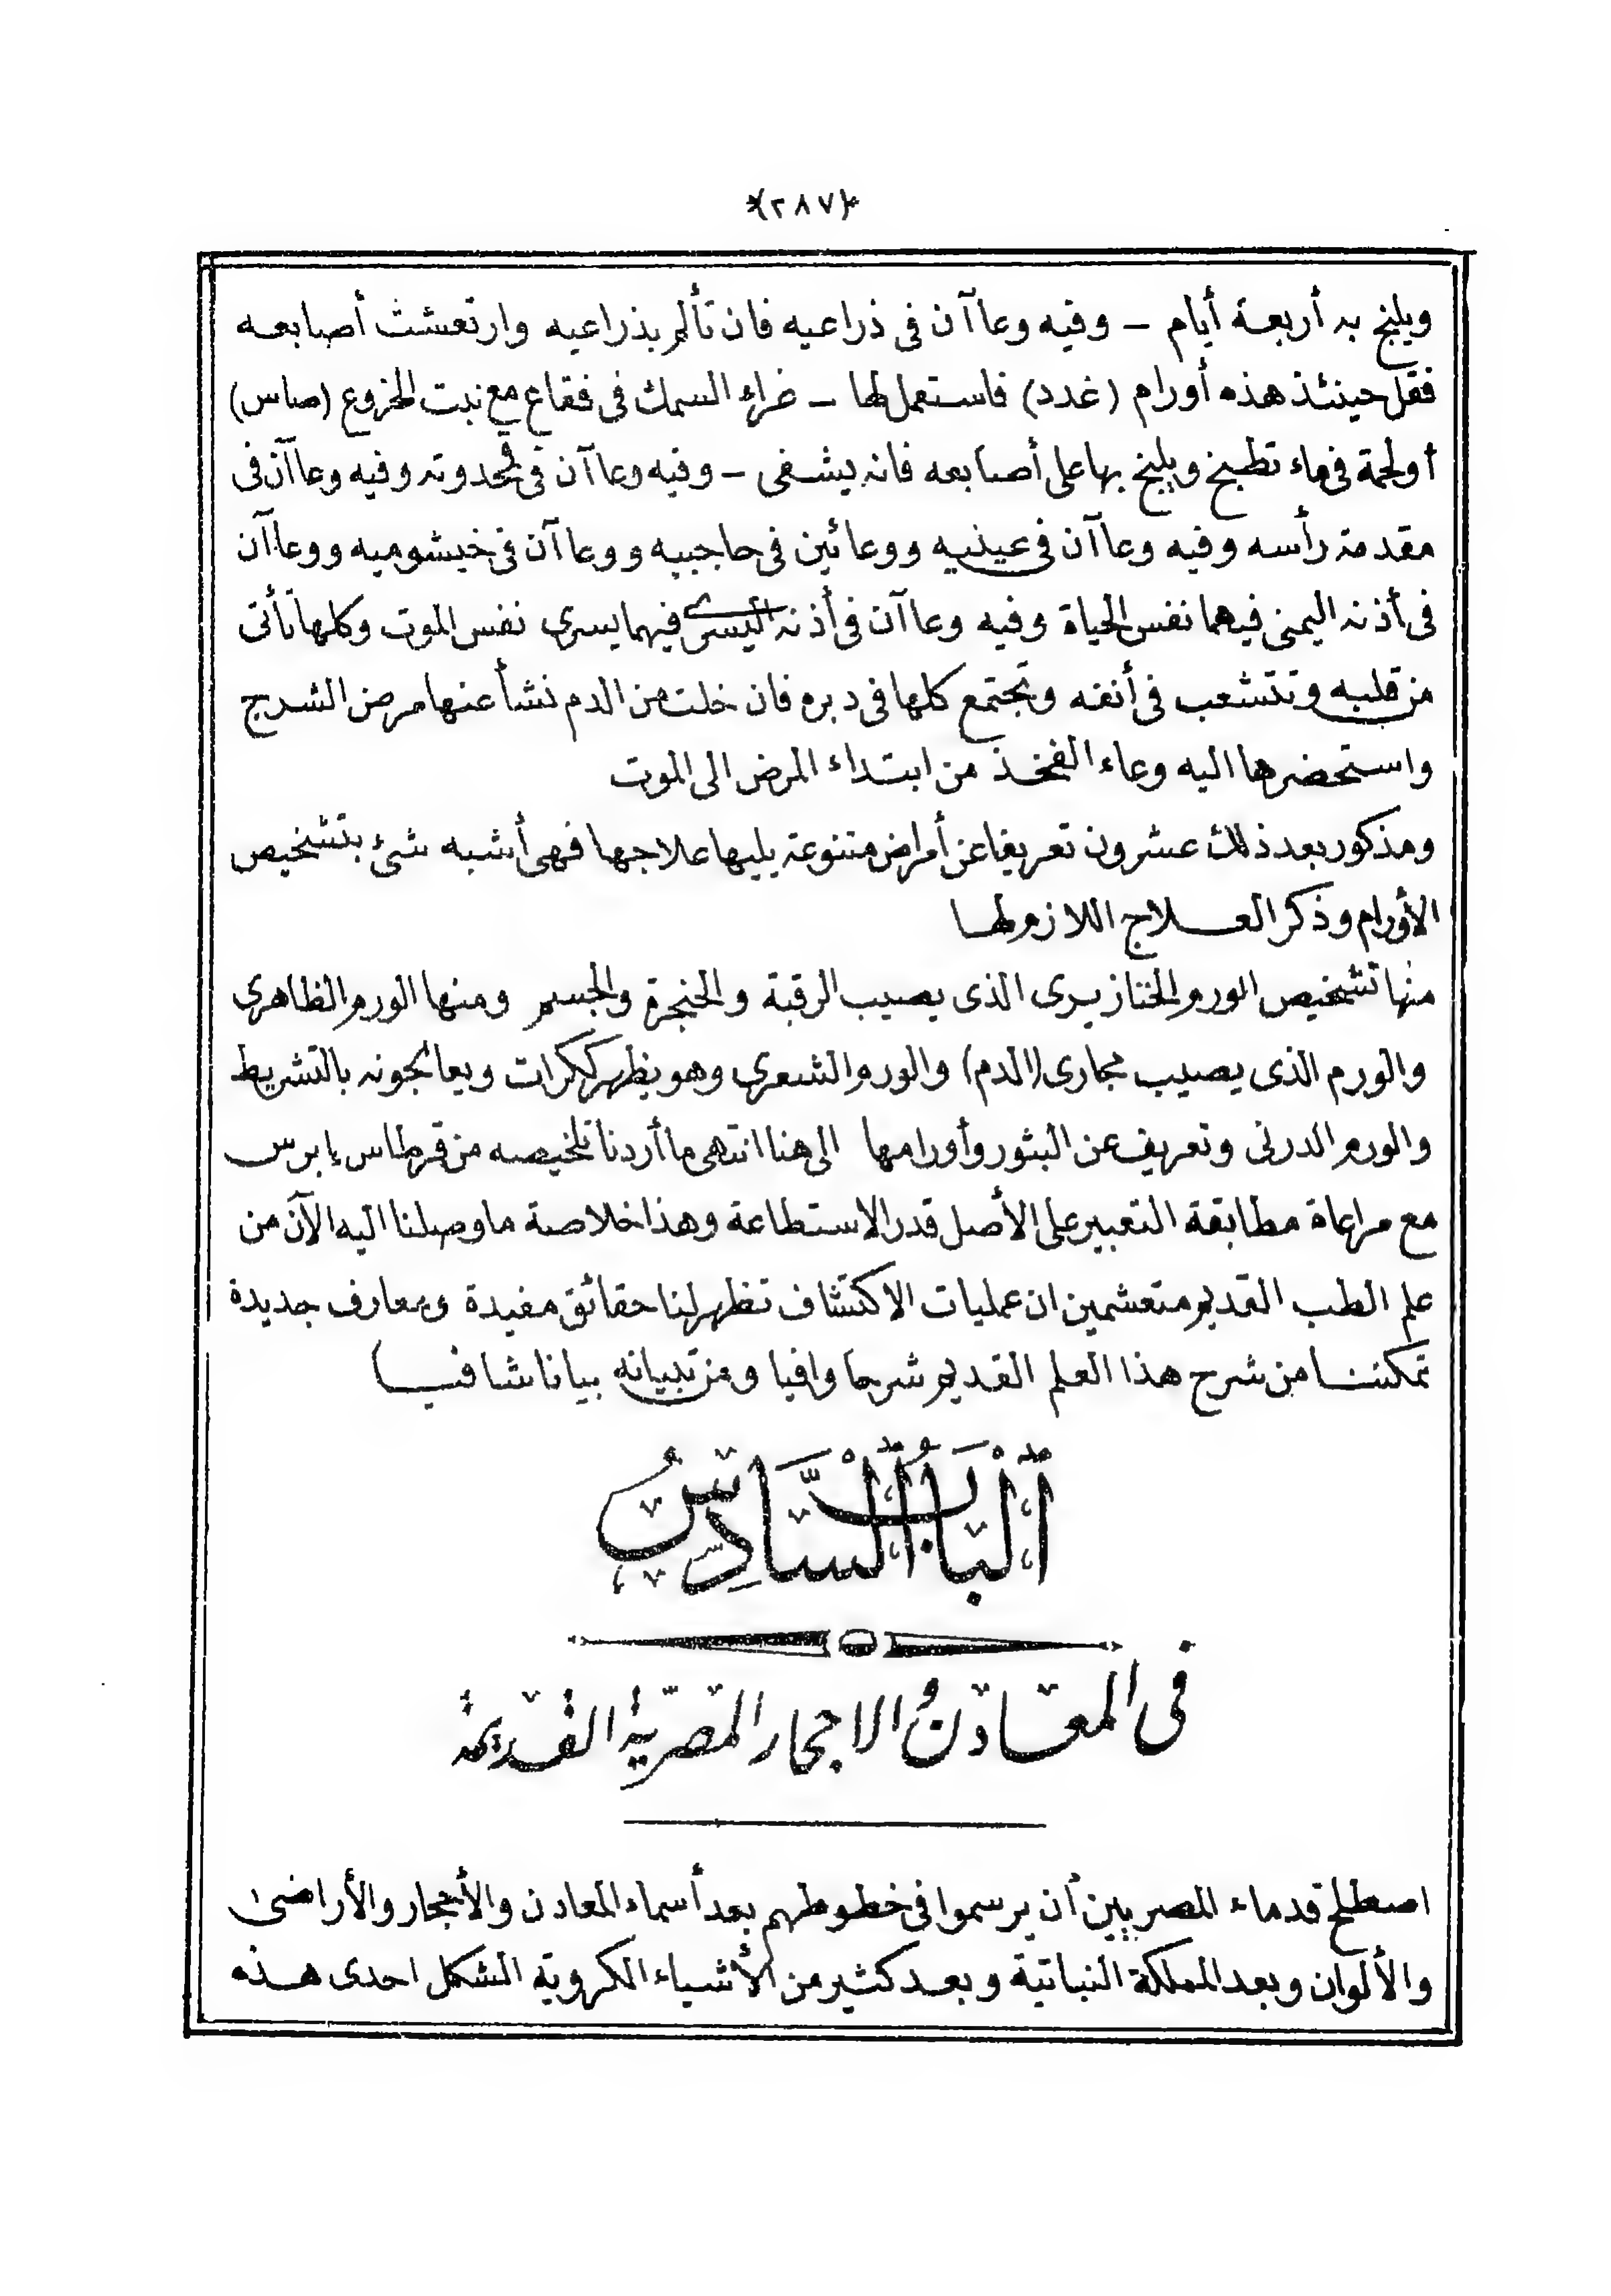 ﴿٢٨٧﴾
ويلبخ به أربعة أيام – وفيه وعاآن فى ذراعيه فان تألم بذراعيه وارتعشت أصابعه
فقل حينئذ هذه أورام (غدد) فاستعمل لها – خراء السمك فى فقاع مع نبت الخروع (صاس)
أولحمة فى ماء تطبخ ويلبخ بها على أصابعه فانه يشفى – وفيه وعاآن فى قمحدوته وفيه وعاآن فى
مقدمة رأسه وفيه وعاآن فى عينيه ووعائين فى حاجبيه ووعاآن فى خيشوميه ووعاآن
فى أذنه اليمنى فيهما نفس الحياة وفيه وعاآن فى أذنه اليسرى فيهما يسرى نفس الموت وكلها تأتى
من قلبه وتتشعب فى أنفه وتجتمع كلها فى دبره فان خلت من الدم نشأ عنها مرض الشرج
واستحضرها اليه وعاء الفخذ من ابتداء المرض الى الموت
ومذكور بعد ذلك عشرون تعريفا عن أمراض متنوعة يليها علاجها فهى أشبه شئ بتشخيص
الأورام وذكر العلاج اللازم لها
منها تشخيص الورم الخنازيرى الذى يصيب الرقبة والحنجرة والجسم ومنها الورم الظاهرى
والورم الذى يصيب مجارى (الدم) والورم الشعرى وهو يظهر ككرات ويعالجونه بالتشريط
والورم الدرنى وتعريف عن البثور وأورامها الى هنا انتهى ما أردنا تلخيصه من قرطاس إبرس
مع مراعاة مطابقة التعبير على الأصل قدر الاستطاعة وهذا خلاصة ما وصلنا اليه الآن من
علم الطب القديم متعشمين ان عمليات الاكتشاف تظهر لنا حقائق مفيدة ومعارف جديدة
تمكننا من شرح هذا العلم القديم شرحا وافيا ومن تبيانه بيانا شافيا
اَلْبَابُ السَّادِسُ
فى المعادن والاحجار المصرية القديمة
اصطلح قدماء المصريين أن يرسموا فى خطوطهم بعد أسماء المعادن والأحجار والأراضى
والألوان وبعد المملكة النباتية وبعد كثير من الأشياء الكروية الشكل احدى هذه